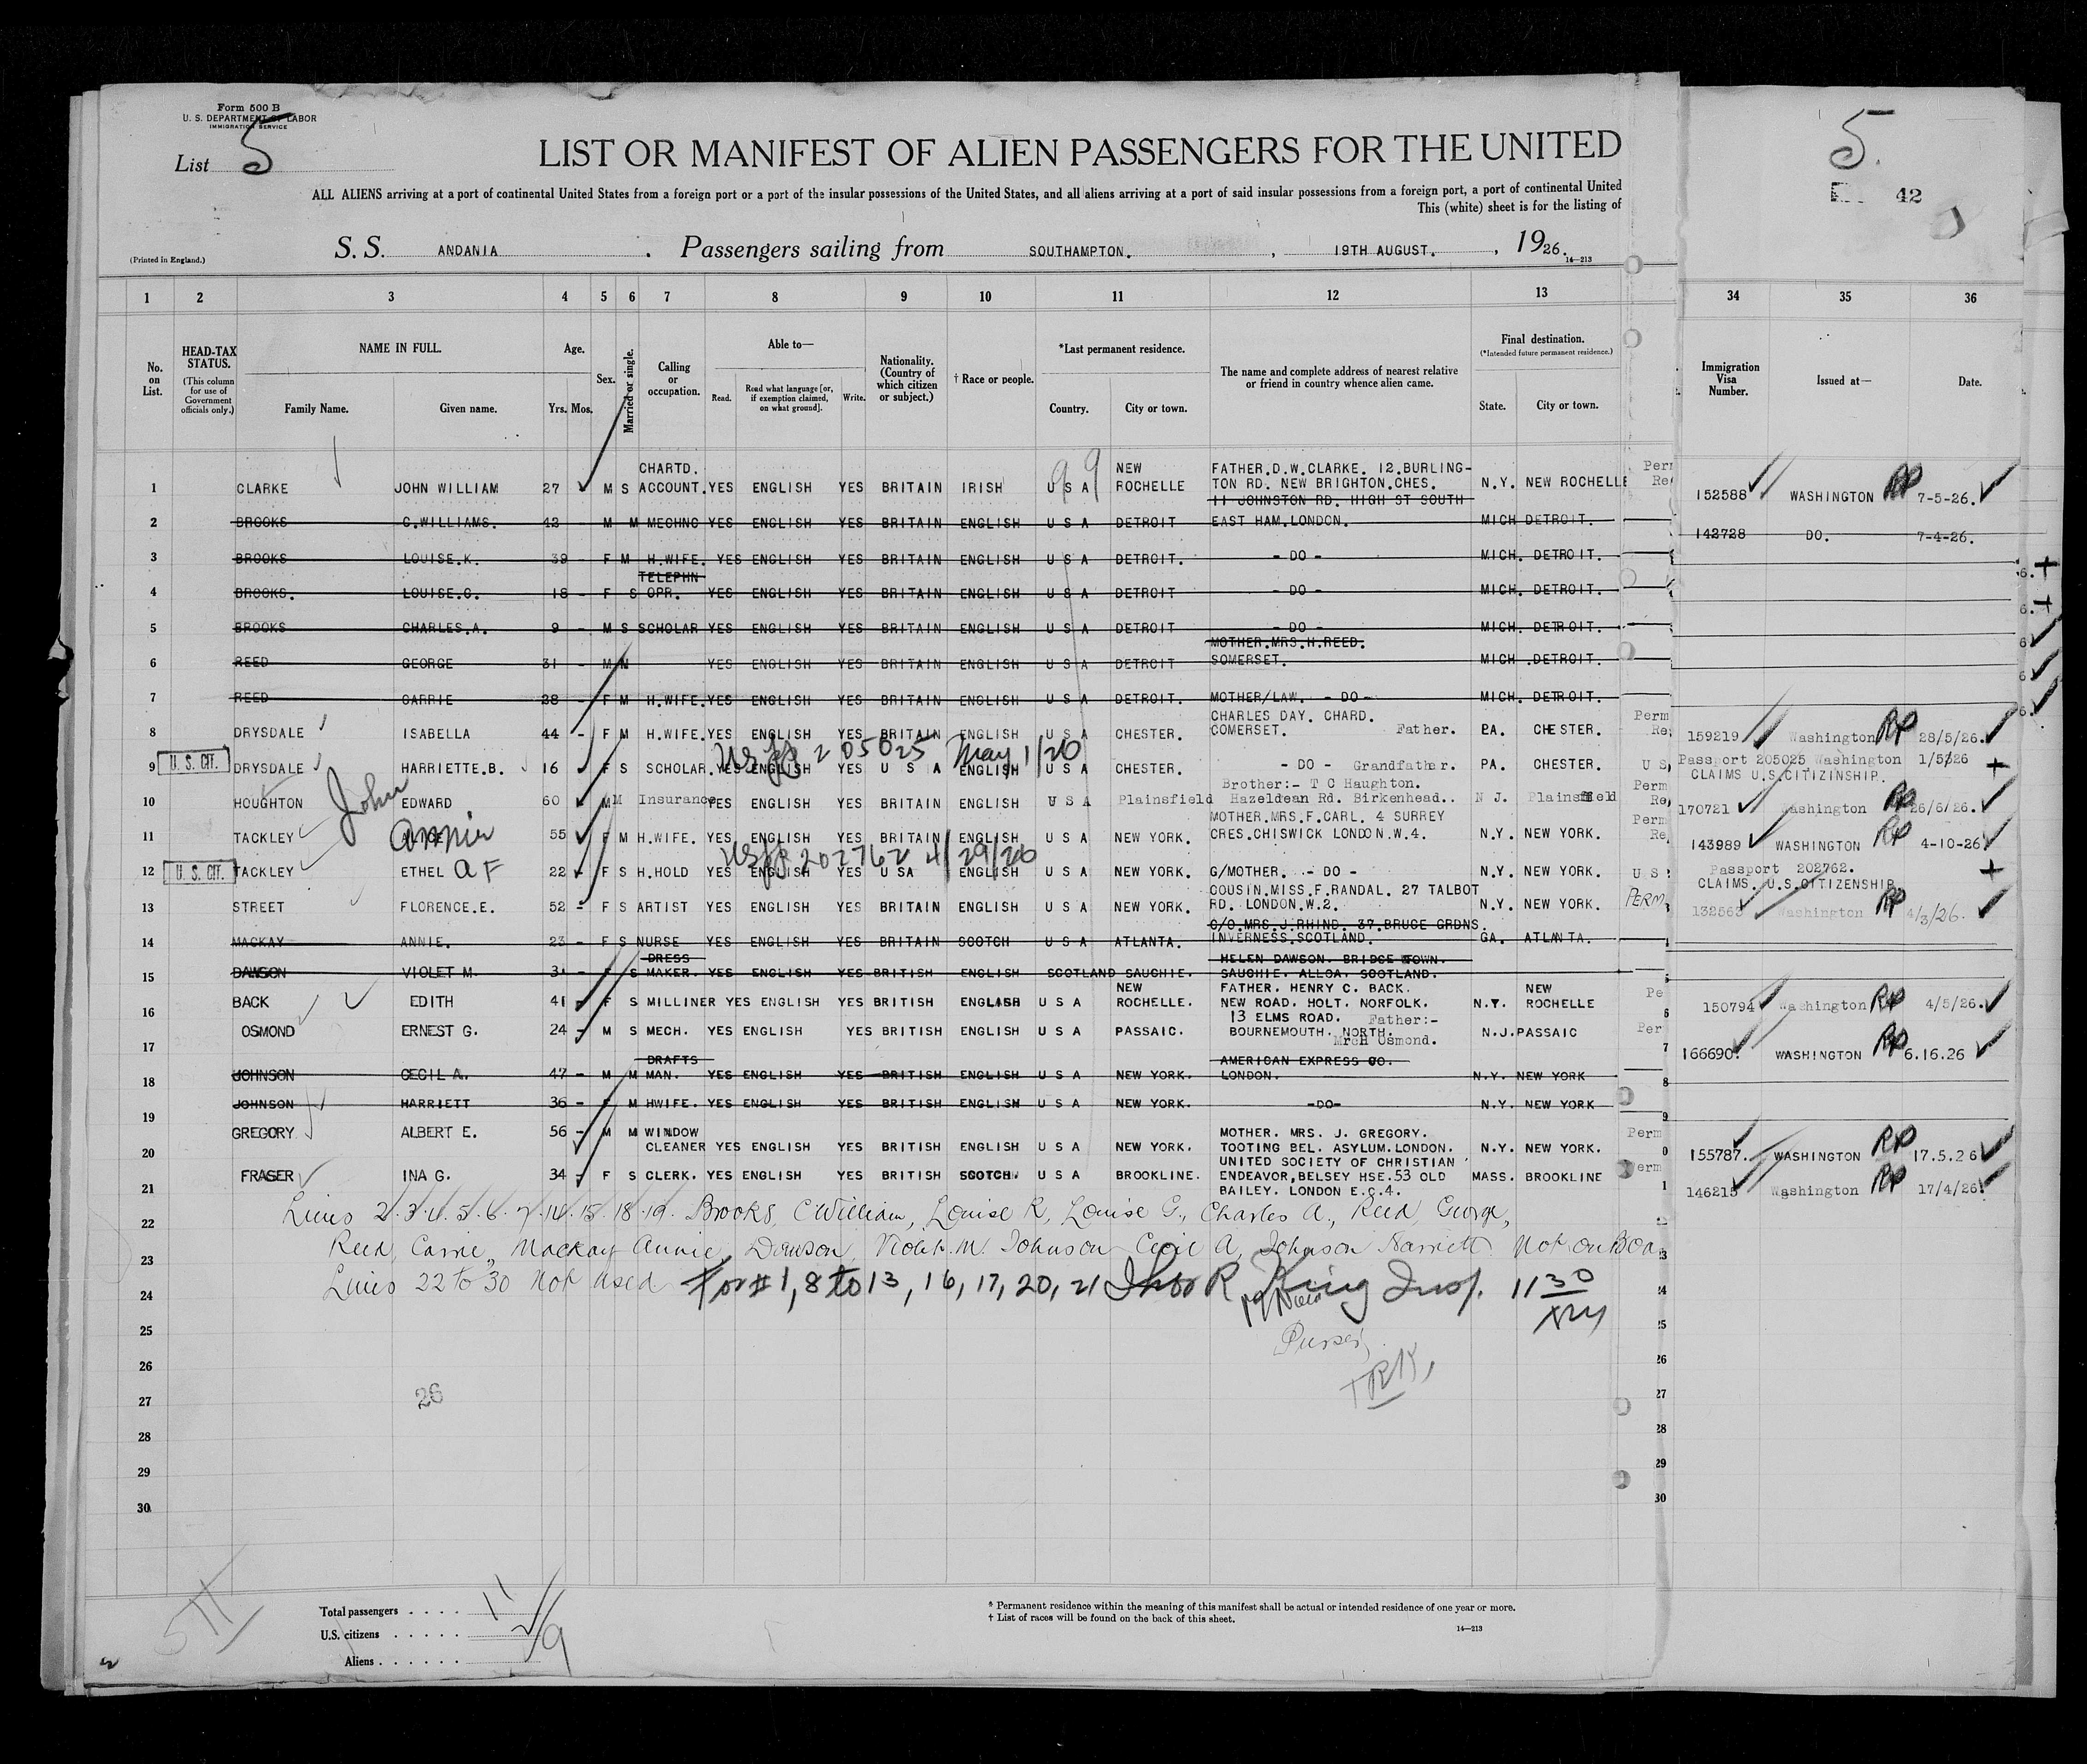 Form 500 B
U. S. DEPARTMENT OF LABOR
IMMIGRATION SERVICE
List 5
LIST OR MANIFEST OF ALIEN PASSENGERS FOR THE UNITED
ALL ALIENS arriving at a port of continental United States from a foreign port or a port of the insular possessions of the United States, and all aliens arriving at a port of said insular possessions from a foreign port, a port of continental United
This (white) sheet is for the listing of
5.
42
(Printed in England.)
S. S. ANDANIA . Passengers sailing from SOUTHAMPTON. , 19TH AUGUST. , 1926.
14—213
1 2 3 4 5 6 7 8 9 10 11 12 13 34 35 36
No. on List.
HEAD-TAX STATUS.
(This column for use of Government officials only.)
NAME IN FULL.
Family Name. Given name.
Age.
Yrs. Mos.
Sex.
Married or single.
Calling or occupation.
Able to—
Read. Read what language [or, if exemption claimed, on what ground]. Write.
Nationality. (Country of which citizen or subject.)
† Race or people.
*Last permanent residence.
Country. City or town.
The name and complete address of nearest relative or friend in country whence alien came.
Final destination.
(*Intended future permanent residence.)
State. City or town.
Immigration Visa Number.
Issued at—
Date.
CHARTD. NEW FATHER.D.W.CLARKE. 12.BURLING- Perm
1 CLARKE JOHN WILLIAM 27 M S ACCOUNT. YES ENGLISH YES BRITAIN IRISH U S A ROCHELLE TON RD. NEW BRIGHTON.CHES. N.Y. NEW ROCHELLE Re 152588 WASHINGTON RP 7-5-26.
11 JOHNSTON RD. HIGH ST SOUTH
2 BROOKS C.WILLIAMS. 42 M M MECHNC YES ENGLISH YES BRITAIN ENGLISH U S A DETROIT EAST HAM.LONDON. MICH DETROIT. 142728 DO. 7-4-26.
3 BROOKS LOUISE.K. 39 F M H.WIFE. YES ENGLISH YES BRITAIN ENGLISH U S A DETROIT. - DO - MICH. DETROIT.
TELEPHN
4 BROOKS. LOUISE.G. 18 - F S OPR. YES ENGLISH YES BRITAIN ENGLISH U S A DETROIT - DO - MICH. DETROIT.
5 BROOKS CHARLES.A. 9 - M S SCHOLAR YES ENGLISH YES BRITAIN ENGLISH U S A DETROIT - DO - MICH. DETROIT.
MOTHER.MRS.H.REED.
6 REED GEORGE 31 - M M YES ENGLISH YES BRITAIN ENGLISH U S A DETROIT SOMERSET. MICH .DETROIT.
7 REED CARRIE 28 - F M H.WIFE. YES ENGLISH YES BRITAIN ENGLISH U S A DETROIT. MOTHER/LAW. - DO - MICH. DETROIT.
CHARLES DAY. CHARD. Perm
8 DRYSDALE ISABELLA 44 - F M H.WIFE. YES ENGLISH YES BRITAIN ENGLISH U S A CHESTER. SOMERSET. Father. PA. CHESTER. Re 159219 Washington RP 28/5/26.
205025 May 1/26
Passport 205025 Washington 1/5/26
9 U. S. CIT. DRYSDALE HARRIETTE.B. 16 F S SCHOLAR. YES ENGLISH YES U S A ENGLISH U S A CHESTER. - DO - Grandfather. PA. CHESTER. U S CLAIMS U.S.CITIZINSHIP.
Brother:- T C Haughton. Perm
10 HOUGHTON John EDWARD 60 M M Insurance YES ENGLISH YES BRITAIN ENGLISH U S A Plainsfield Hazeldean Rd. Birkenhead.. N J. Plainsfield Re 170721 Washington RP 26/6/26.
MOTHER.MRS.F.CARL. 4 SURREY Perm
11 TACKLEY Annie 55 F M H.WIFE. YES ENGLISH YES BRITAIN ENGLISH U S A NEW YORK. CRES.CHISWICK LONDON.W.4. N.Y. NEW YORK. Re 143989 WASHINGTON RP 4-10-26
202762 4/29/26
Passport 202762.
12 U. S. CIT. TACKLEY ETHEL A F 22 - F S H.HOLD YES ENGLISH YES U SA ENGLISH U S A NEW YORK. G/MOTHER. - DO - N.Y. NEW YORK. U S CLAIMS. U.S.CITIZENSHIP
COUSIN.MISS.F.RANDAL. 27 TALBOT
13 STREET FLORENCE.E. 52 - F S ARTIST YES ENGLISH YES BRITAIN ENGLISH U S A NEW YORK. RD. LONDON.W.2. N.Y. NEW YORK. PERM 132563 Washington RP 4/3/26.
C/O.MRS.J.RHIND. 37.BRUCE GRDNS.
14 MACKAY ANNIE. 23 - F S NURSE YES ENGLISH YES BRITAIN SCOTCH U S A ATLANTA. INVERNESS.SCOTLAND. GA. ATLANTA.
DRESS HELEN DAWSON. BRIDGE TOWN.
15 DAWSON VIOLET M. 31 - F S MAKER. YES ENGLISH YES BRITISH ENGLISH SCOTLAND SAUCHIE. SAUCHIE. ALLOA. SCOTLAND.
NEW FATHER. HENRY C. BACK. NEW
16 BACK EDITH 41 - F S MILLINER YES ENGLISH YES BRITISH ENGLISH U S A ROCHELLE. NEW ROAD. HOLT. NORFOLK. N.Y. ROCHELLE Pe 150794 Washington RP 4/5/26.
13 ELMS ROAD. Father:-
17 OSMOND ERNEST G. 24 - M S MECH. YES ENGLISH YES BRITISH ENGLISH U S A PASSAIC. BOURNEMOUTH. NORTH. N.J. PASSAIC Per 166690. WASHINGTON RP 6.16.26
Mr H Osmond.
DRAFTS AMERICAN EXPRESS CO.
18 JOHNSON CECIL A. 47 - M M MAN. YES ENGLISH YES BRITISH ENGLISH U S A NEW YORK. LONDON. N.Y. NEW YORK
19 JOHNSON HARRIETT 36 - F M HWIFE. YES ENGLISH YES BRITISH ENGLISH U S A NEW YORK. -DO- N.Y. NEW YORK
GREGORY ALBERT E. 56 - M M WINDOW MOTHER. MRS. J. GREGORY. Perm
20 CLEANER YES ENGLISH YES BRITISH ENGLISH U S A NEW YORK. TOOTING BEL. ASYLUM.LONDON. N.Y. NEW YORK. 155787. WASHINGTON RP 17.5.26
UNITED SOCIETY OF CHRISTIAN
21 FRASER INA G. 34 - F S CLERK. YES ENGLISH YES BRITISH SCOTCH. U S A BROOKLINE. ENDEAVOR,BELSEY HSE.53 OLD MASS. BROOKLINE Perm 146215 Washington RP 17/4/26
BAILEY. LONDON E.C.4.
22 Lines 2.3.4.5.6.7.14.15.18.19. Brooks, C William, Louise K, Louise G., Charles A., Reed, George,
23 Reed, Carrie, Mackay Annie, Dawson, Violet. M. Johnson Cecil A, Johnson Harriett. Not on Boa
24 Lines 22 to 30 Not Used For # 1, 8 to 13, 16, 17, 20, 21 Thos R King Insp. 11 30
Purser
TRK,
25
26
27
26
28
29
30
Total passengers . . . . 11
U.S. citizens . . . . . 2
Aliens . . . . . . 9
* Permanent residence within the meaning of this manifest shall be actual or intended residence of one year or more.
† List of races will be found on the back of this sheet.
14—213